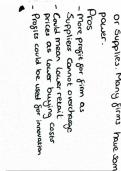 or supplies. Many firms have som
power.
Pros
- More profit for firm as
suppliers cannot overcharge
- Could mean lower retail
prices as lower buying costs
- Profits could be used for innovation